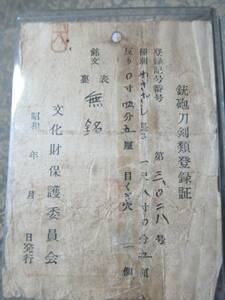 銃砲刀剣類登録証
登録記号番号 第三〇二八号
種別 わきざし 長さ 一尺八寸〇分五厘
反り 〇寸四分五厘 目くぎ穴 一個
銘文 表 裏 無銘
昭和 年 月 日発行
文化財保護委員会